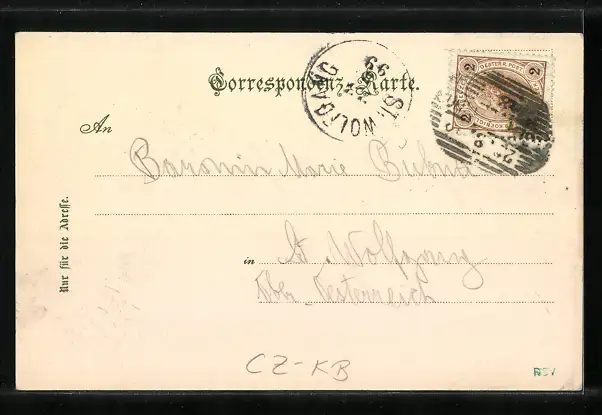 Correspondenz-Karte.
ST. WOLFGANG
99
2 OESTERR. POST 2
An
Baronin Marie Bubna
in St Wolfgang
Ober Oesterreich
Nur für die Adresse.
CZ-KB